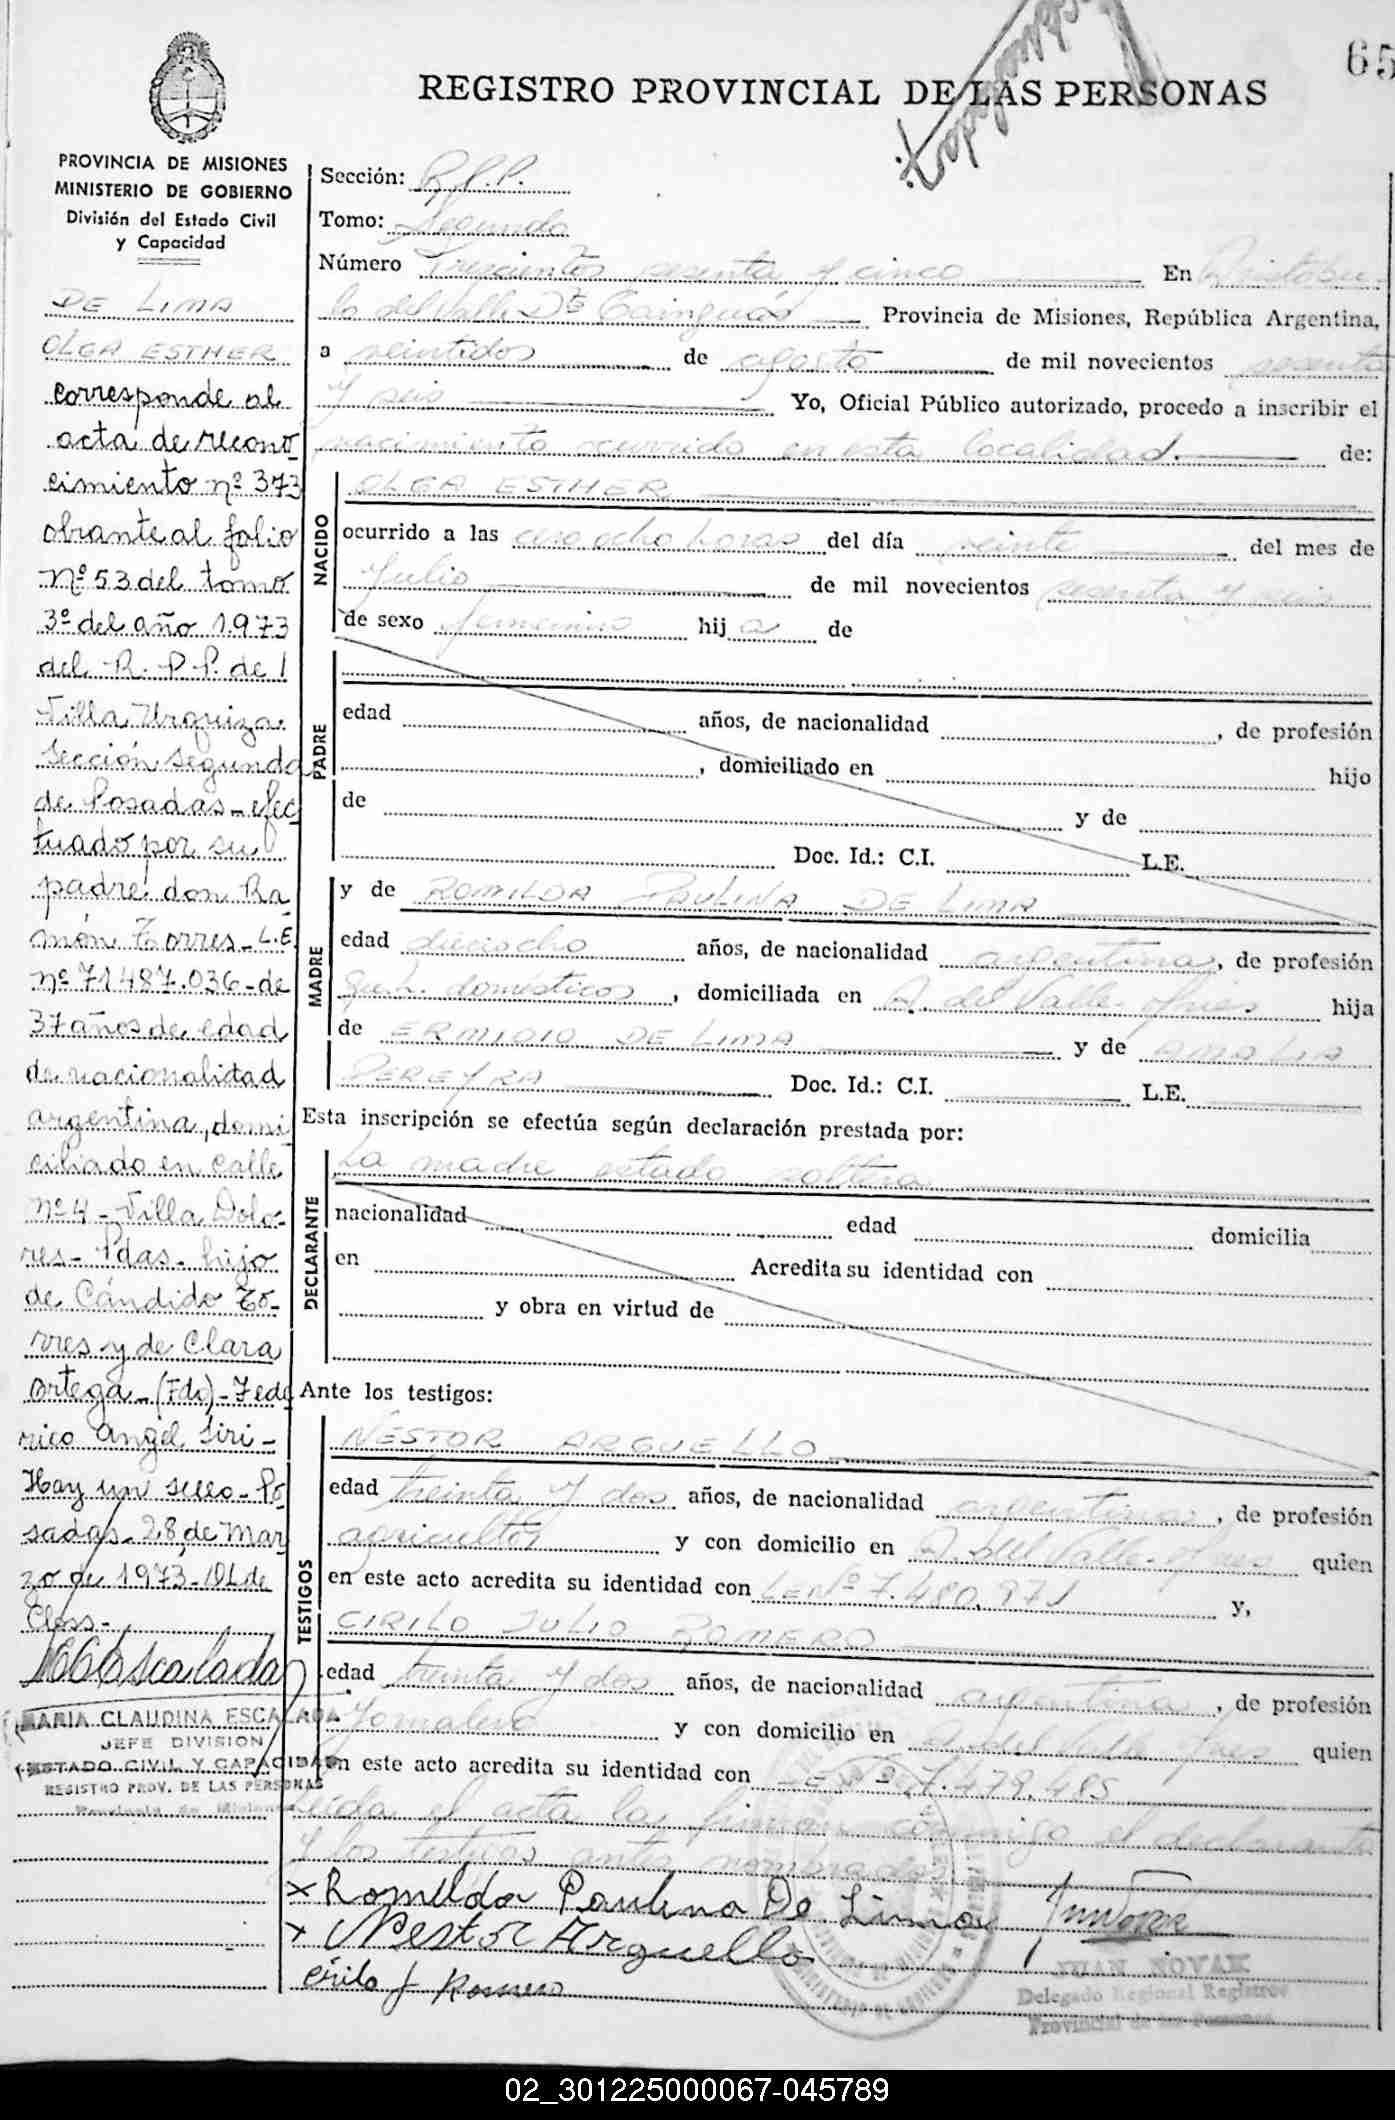 65
REGISTRO PROVINCIAL DE LAS PERSONAS
PROVINCIA DE MISIONES
MINISTERIO DE GOBIERNO
División del Estado Civil
y Capacidad
DE LIMA
OLGA ESTHER
corresponde al
acta de recono
cimiento nº 373
obrante al folio
Nº 53 del tomo
3º del año 1.973
del R. P. P. de
Villa Urquiza
sección segunda
de Posadas - efec
tuado por su
padre don Ra
món Torres - L.E.
nº 71487.036 - de
37 años de edad
de nacionalidad
argentina, domi
ciliado en calle
nº 4 - Villa Dolo-
res - Pdas. hijo
de Cándido To-
rres y de Clara
Ortega - (Fdo) - Fede
rico Angel Siri -
Hay un sello - Po
sadas - 28 de Mar
zo de 1973 - DL de
Closs -
MARIA CLAUDINA ESCALADA
JEFE DIVISION
ESTADO CIVIL Y CAPACIDAD
REGISTRO PROV. DE LAS PERSONAS
Provincia de Misiones
Sección: R.P.P.
Tomo: Segundo
Número Trescientos sesenta y cinco En Aristóbu-
lo del Valle Dto Cainguás Provincia de Misiones, República Argentina,
a veintidos de agosto de mil novecientos sesenta
y seis Yo, Oficial Público autorizado, procedo a inscribir el
nacimiento ocurrido en esta localidad. de:
NACIDO
OLGA ESTHER
ocurrido a las cero ocho horas del día veinte del mes de
Julio de mil novecientos sesenta y seis
de sexo femenino hij a de
PADRE
edad años, de nacionalidad , de profesión
, domiciliado en hijo
de y de
Doc. Id.: C.I. L.E.
MADRE
y de ROMILDA PAULINA DE LIMA
edad dieciocho años, de nacionalidad argentina, de profesión
queh. domésticos, domiciliada en A. del Valle - Mnes hija
de ERMIDIO DE LIMA y de AMALIA
PEREYRA Doc. Id.: C.I. L.E.
Esta inscripción se efectúa según declaración prestada por:
DECLARANTE
La madre estado soltera
nacionalidad edad domicilia
en Acredita su identidad con
y obra en virtud de
Ante los testigos:
TESTIGOS
NESTOR ARGUELLO
edad treinta y dos años, de nacionalidad argentina, de profesión
agricultor y con domicilio en A. del Valle - Mnes quien
en este acto acredita su identidad con LE Nº 7.480.871 y,
CIRILO JULIO ROMERO
edad treinta y dos años, de nacionalidad argentina, de profesión
Jornalero y con domicilio en A. del Valle Mnes quien
en este acto acredita su identidad con LE Nº 7.479.485
Leida el acta la firman conmigo el declarante
y los testigos antes nombrados
x Romilda Paulina De Lima
x Nestor Arguello
Cirilo J Romero
JUAN NOVAK
Delegado Regional Registro
Provincial de las Personas
02_301225000067-045789